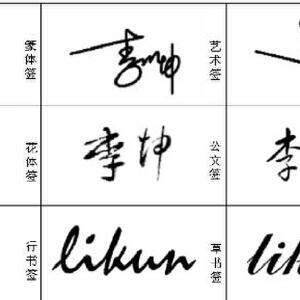 篆体签 李坤 艺术签
花体签 李坤 公文签 李
行书签 likun 草书签 lik